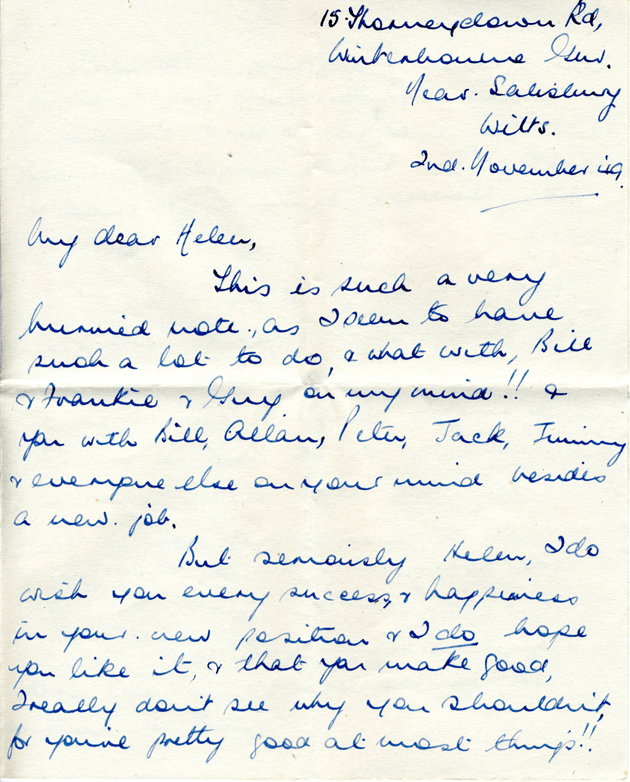 15 Thorneydown Rd,
Winterbourne Gun.
Near. Salisbury
Wilts.
2nd. November 49.
My dear Helen,
This is such a very
hurried note., as I seem to have
such a lot to do, & what with, Bill
& Frankie & Guy on my mind!! &
you with Bill, Allan, Peter, Jack, Jimmy
& everyone else on your mind besides
a new. job.
But seriously Helen, I do
wish you every success, & happiness
in your. new position & I do hope
you like it, & that you make good,
I really don't see why you shouldn't,
for you're pretty good at most things!!